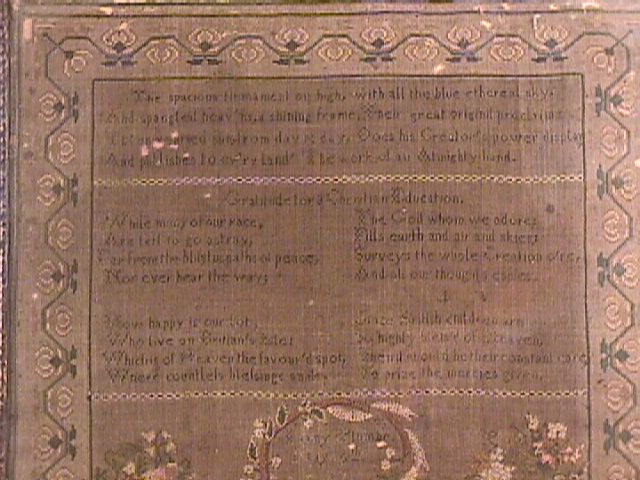 The spacious firmament on high, with all the blue ethereal sky,
And spangled heav'ns, a shining frame, Their great original proclaim.
from day to day, Does his Creator's power display
And publishes to ev'ry land The work of an Almighty hand.
Gratitude for a Christian Education.
While many of our race,
Are left to go astray,
Far from the blissful paths of peace,
Nor ever hear the way;
The God whom we adore;
Fills earth and air and skies;
Surveys the whole Creation o'er,
And all our thoughts
How happy is our lot,
Who live on Britian's Isle;
Which is of Heaven the favour'd spot,
Where countless blessings smile.
Since British children are
So highly bless'd of Heaven,
should be their constant care,
To prize the mercies given.